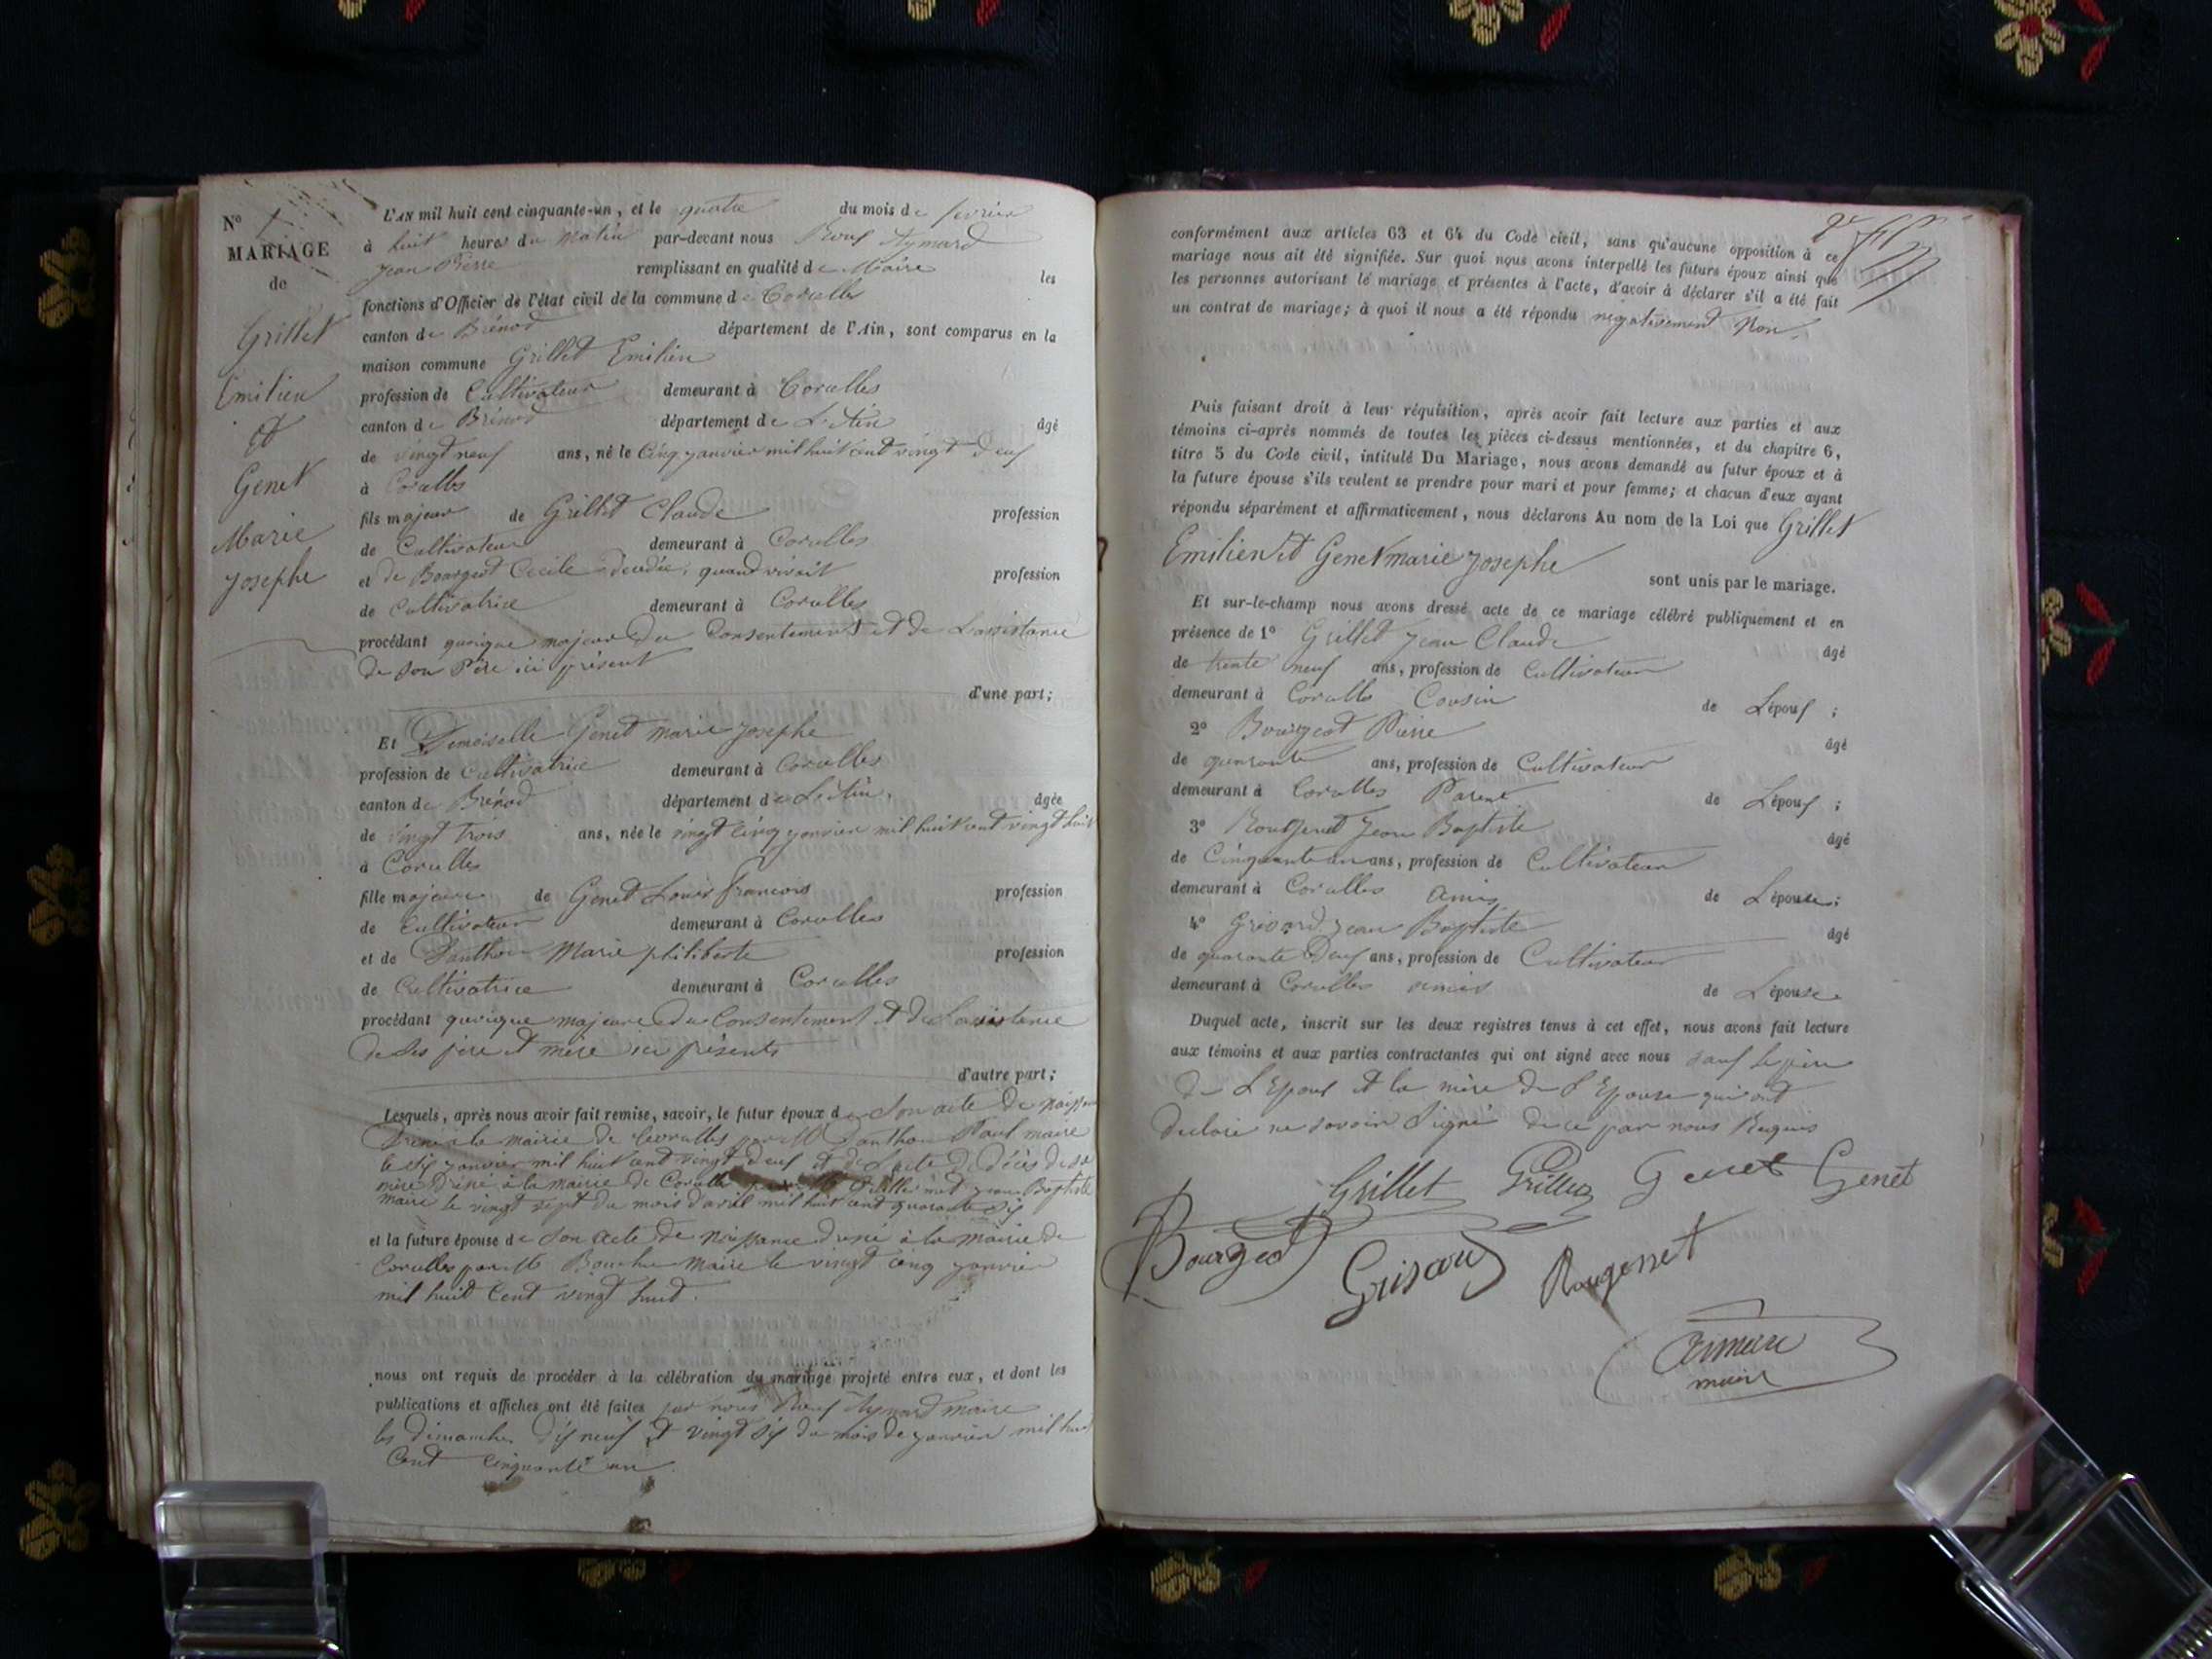 N° 1
MARIAGE
de
Grillet
Emilien
et
Genet
Marie
Josephe
L'AN mil huit cent cinquante-un, et le quatre du mois de fevrier
à huit heures du matin par-devant nous Roux Aymard
Jean Pierre remplissant en qualité de Maire les
fonctions d'Officier de l'état civil de la commune de Corcelles
canton de Brénod département de l'Ain, sont comparus en la
maison commune Grillet Emilien
profession de Cultivateur demeurant à Corcelles
canton de Brénod département de L'Ain âgé
de vingt neuf ans, né le Cinq janvier mil huit cent vingt deux
à Corcelles
fils majeur de Grillet Claude profession
de Cultivateur demeurant à Corcelles
et de Bourgeot Cecile décédée, quand vivait profession
de Cultivatrice demeurant à Corcelles
procédant quoique majeur du Consentement et de L'assistance
de son Père ici présent
d'une part;
Et Demoiselle Genet marie josephe
profession de Cultivatrice demeurant à Corcelles
canton de Brénod département de L'Ain, âgée
de vingt trois ans, née le vingt cinq janvier mil huit cent vingt huit
à Corcelles
fille majeure de Genet Louis François profession
de Cultivateur demeurant à Corcelles
et de Santhon Marie philiberte profession
de Cultivatrice demeurant à Corcelles
procédant quoique majeure du Consentement et de L'assistance
de ses père et mère ici présents
d'autre part;
Lesquels, après nous avoir fait remise, savoir, le futur époux de son acte de
à la mairie de Corcelles par Mr Santhon Paul maire
le six janvier mil huit cent vingt deux et de L'acte de décès de sa
mère à la mairie de Corcelles jean Baptiste
maire le vingt sept du mois d'avril mil huit cent quarante six
et la future épouse de son acte de naissance à la mairie de
Corcelles par Mr maire le vingt cinq janvier
mil huit Cent vingt huit.
nous ont requis de procéder à la célébration du mariage projeté entre eux, et dont les
publications et affiches ont été faites par nous Roux Aymard maire
les dimanches dix neuf et vingt six du mois de janvier mil huit
Cent Cinquante un.
conformément aux articles 63 et 64 du Code civil, sans qu'aucune opposition à ce
mariage nous ait été signifiée. Sur quoi nous avons interpellé les futurs époux ainsi que
les personnes autorisant le mariage et présentes à l'acte, d'avoir à déclarer s'il a été fait
un contrat de mariage; à quoi il nous a été répondu negativement Non.
Puis faisant droit à leur réquisition, après avoir fait lecture aux parties et aux
témoins ci-après nommés de toutes les pièces ci-dessus mentionnées, et du chapitre 6,
titre 5 du Code civil, intitulé Du Mariage, nous avons demandé au futur époux et à
la future épouse s'ils veulent se prendre pour mari et pour femme; et chacun d'eux ayant
répondu séparément et affirmativement, nous déclarons Au nom de la Loi que Grillet
Emilien et Genet marie Josephe
sont unis par le mariage.
Et sur-le-champ nous avons dressé acte de ce mariage célébré publiquement et en
présence de 1° Grillet Jean Claude âgé
de trente neuf ans, profession de Cultivateur
demeurant à Corcelles Cousin de L'époux ;
2° Bourgeot Pierre âgé
de quarante ans, profession de Cultivateur
demeurant à Corcelles Parent de L'époux ;
3° Rougenet Jean Baptiste âgé
de Cinquante un ans, profession de Cultivateur
demeurant à Corcelles amis de L'épouse;
4° Grisard Jean Baptiste âgé
de quarante Deux ans, profession de Cultivateur
demeurant à Corcelles amis de L'épouse
Duquel acte, inscrit sur les deux registres tenus à cet effet, nous avons fait lecture
aux témoins et aux parties contractantes qui ont signé avec nous sauf le père
de L'Epoux et la mère de L'Epouse qui ont
declaré ne savoir Signé de ce par nous Requis
Grillet Grillet Genet Genet
Bourgeot Grisard Rougenet
maire